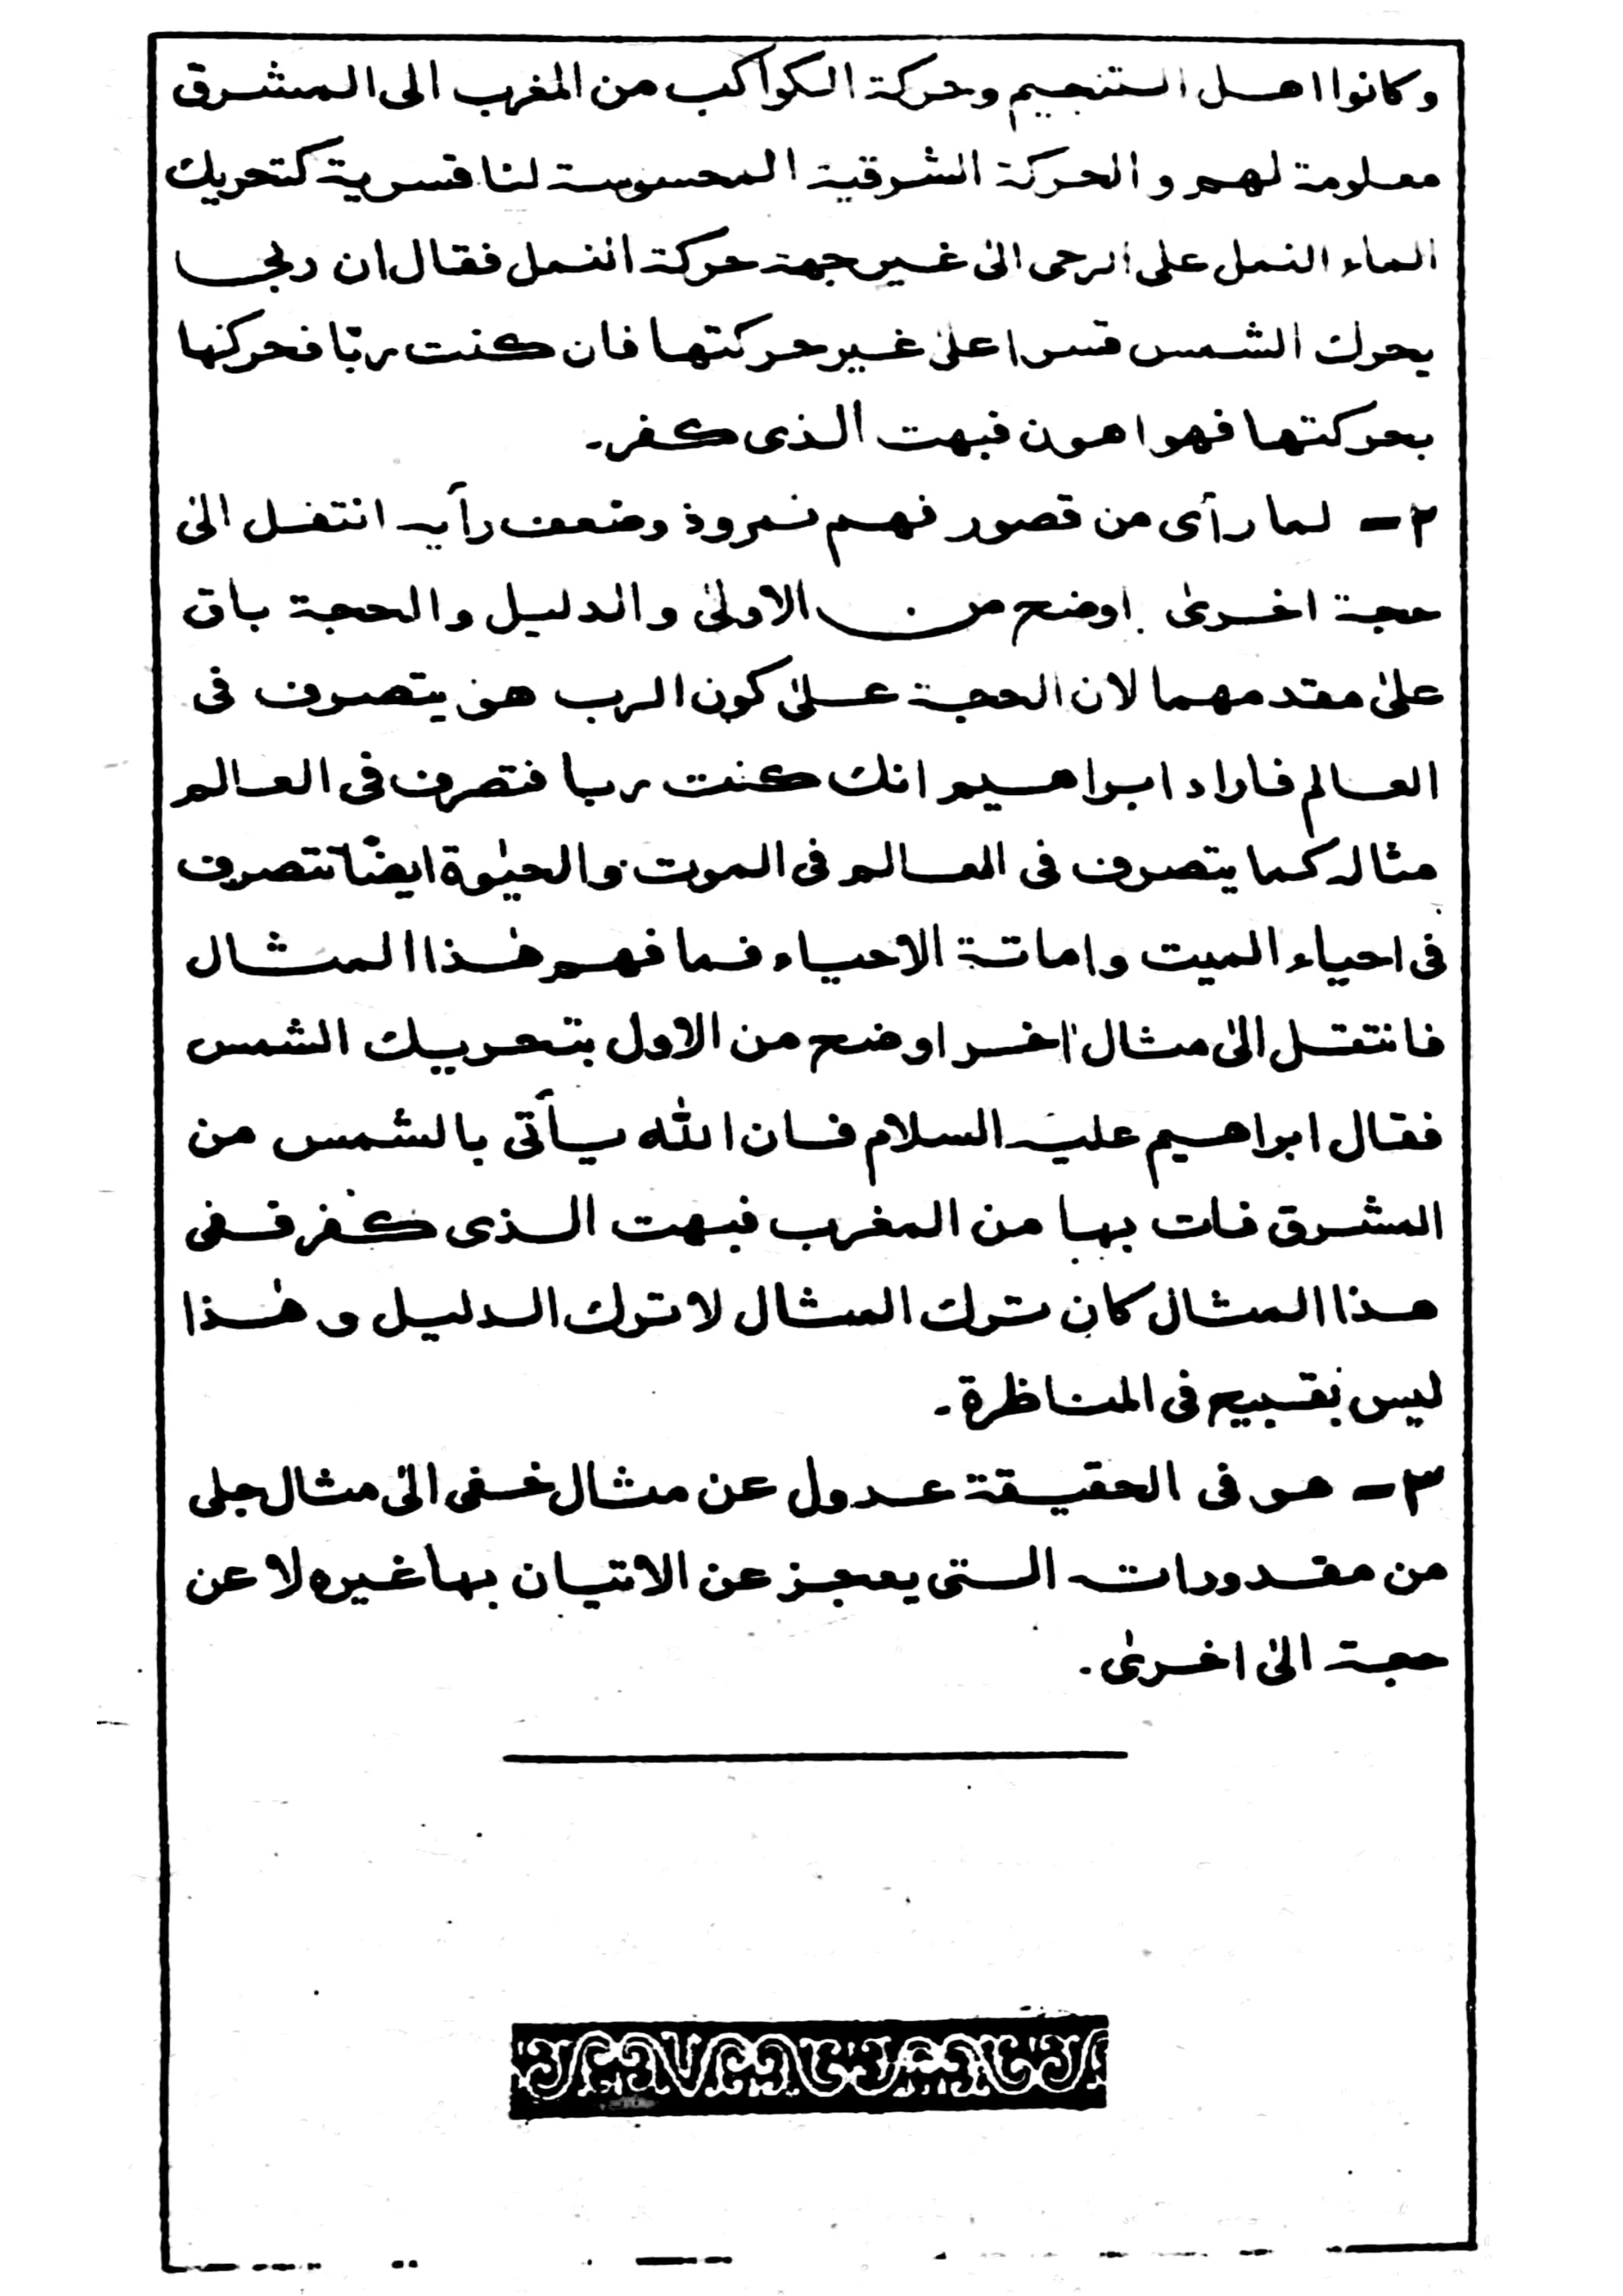 وكانوا اهل التنجيم وحركة الكواكب من المغرب الى المشرق
معلومة لهم والحركة الشرقية المحسوسة لنا قسرية كتحريك
الماء النمل على الرحى الى غير جهة حركة النمل فقال ان ربى
يحرك الشمس قسرا على غير حركتها فان كنت ربّا فحركها
بحركتها فهو اهون فبهت الذى كفر۔
۲ — لما رأى من قصور فهم نمروذ وضعف رأيه انتقل الى
حجة اخرىٰ اوضح من الاولىٰ والدليل والحجة باق
علىٰ مقدمهما لان الحجة علىٰ كون الرب هى يتصرف فى
العالم فاراد ابراهيم انك كنت ربا فتصرف فى العالم
مثاله كما يتصرف فى العالم فى الموت والحيٰوة ايضًا تتصرف
فى احياء الميت واماتة الاحياء فما فهم هٰذا المثال
فانتقل الىٰ مثال اٰخر اوضح من الاول بتحريك الشمس
فقال ابراهيم عليه السلام فان الله يأتى بالشمس من
المشرق فات بها من المغرب فبهت الذى كفر ففى
هذا المثال كان ترك المثال لا ترك الدليل و هٰذا
ليس بقبيح فى المناظرة۔
۳ — هو فى الحقيقة عدول عن مثال خفى الىٰ مثال جلى
من مقدورات التى يعجز عن الاتيان بها غيره لا عن
حجة الىٰ اخرىٰ۔